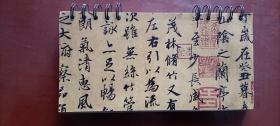 歲在癸丑暮
陰之蘭亭
至少長咸
茂林脩竹又有
左右引以為流
次雖無絲竹
詠亦足以暢
朗氣清惠風
之大俯察品類